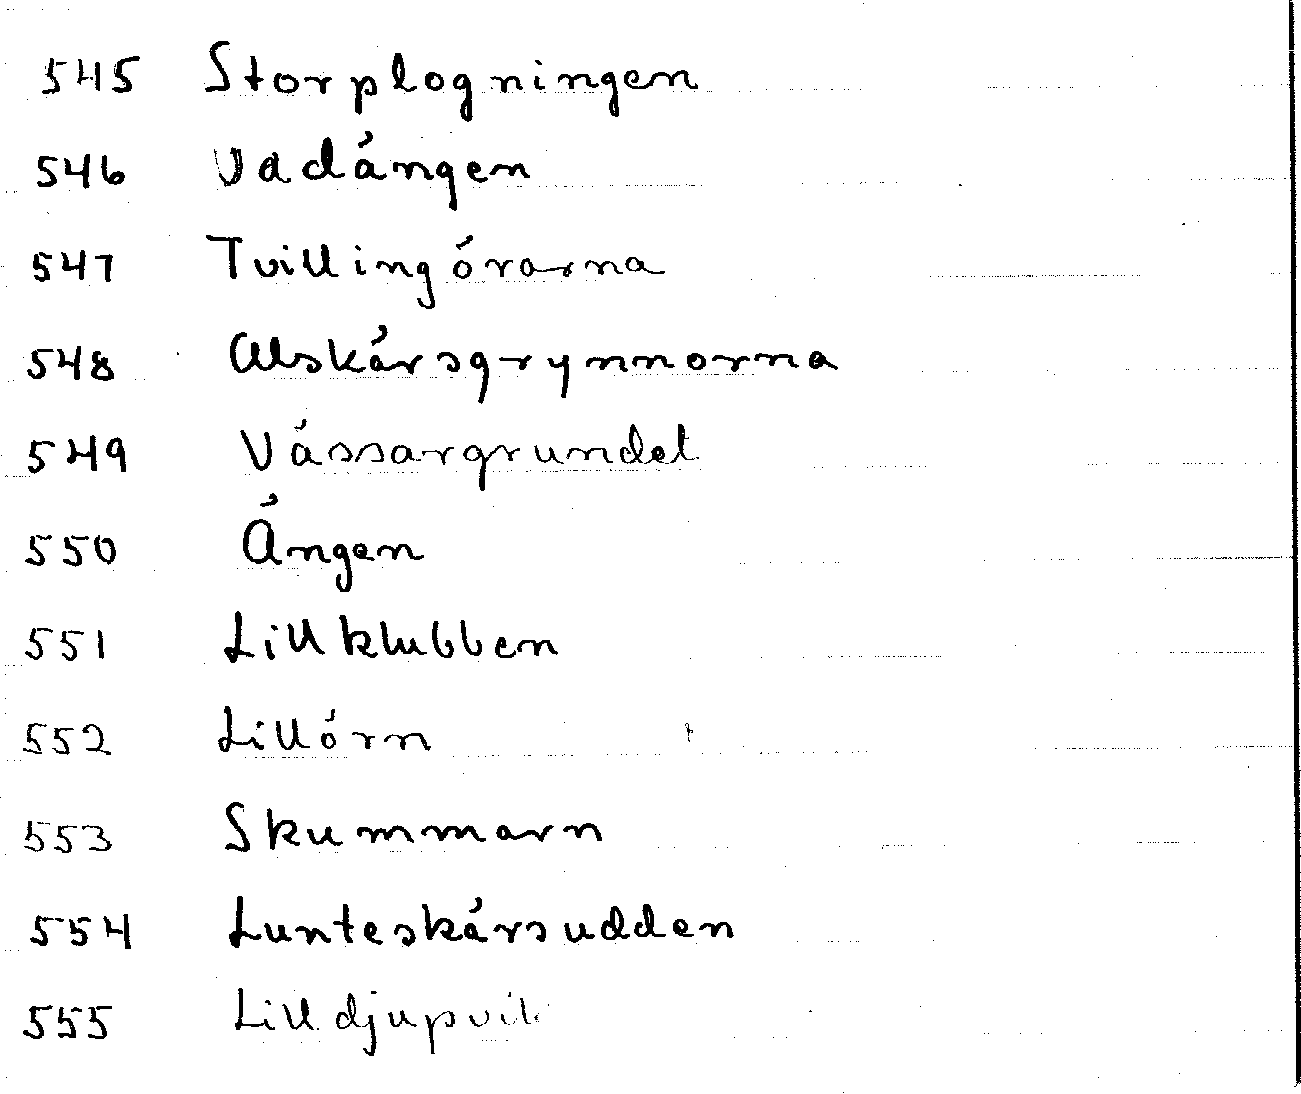 545 Storplogningen
546 Vadängen
547 Tvillingörarna
548 Alskärsgrynnorna
549 Vässargrundet
550 Ängen
551 Lillklubben
552 Lillörn
553 Skummarn
554 Lunteskärsudden
555 Lilldjupvik